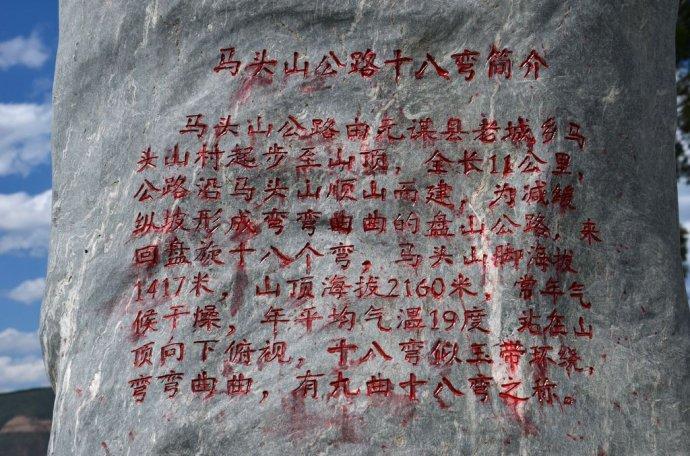 马头山公路十八弯简介
马头山公路由元谋县老城乡马
头山村起步至山顶，全长11公里，
公路沿马头山顺山而建，为减缓
纵坡形成弯弯曲曲的盘山公路，来
回盘旋十八个弯，马头山脚海拔
1417米，山顶海拔2160米，常年气
候干燥，年平均气温19度 站在山
顶向下俯视，十八弯似玉带环绕，
弯弯曲曲，有九曲十八弯之称。